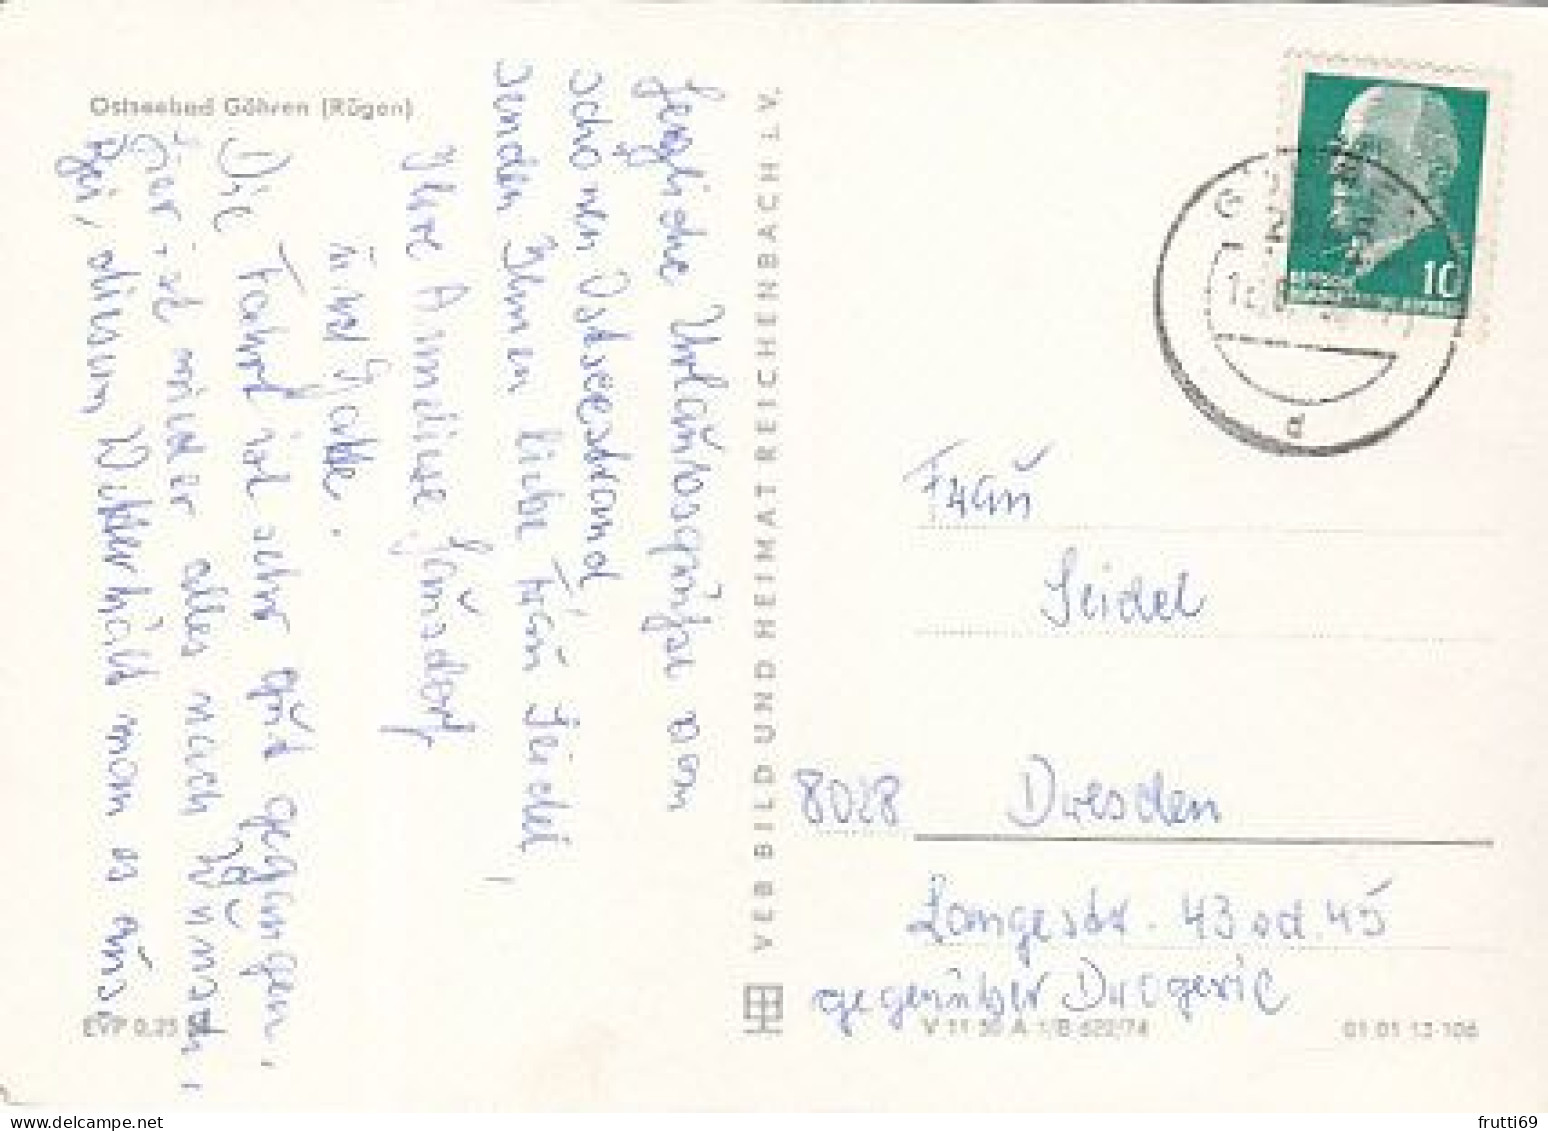 Ostseebad Göhren (Rügen)
Herzliche Urlaubsgrüße vom
schönen Ostseestrand
senden Ihnen liebe Frau Seidel,
Ihre Annelise
und Gatte.
Die Fahrt ist sehr gut gegangen,
hier ist wieder alles nach Wunsch,
Bei diesem Wetter hält man es aus.
EVP 0,25
VEB BILD UND HEIMAT REICHENBACH I. V.
10
a
Frau
Seidel
8028 Dresden
Langestr. 43 od. 45
gegenüber Drogerie
V 11 50 A 1/B 622/74
01 01 13 106
frutti69